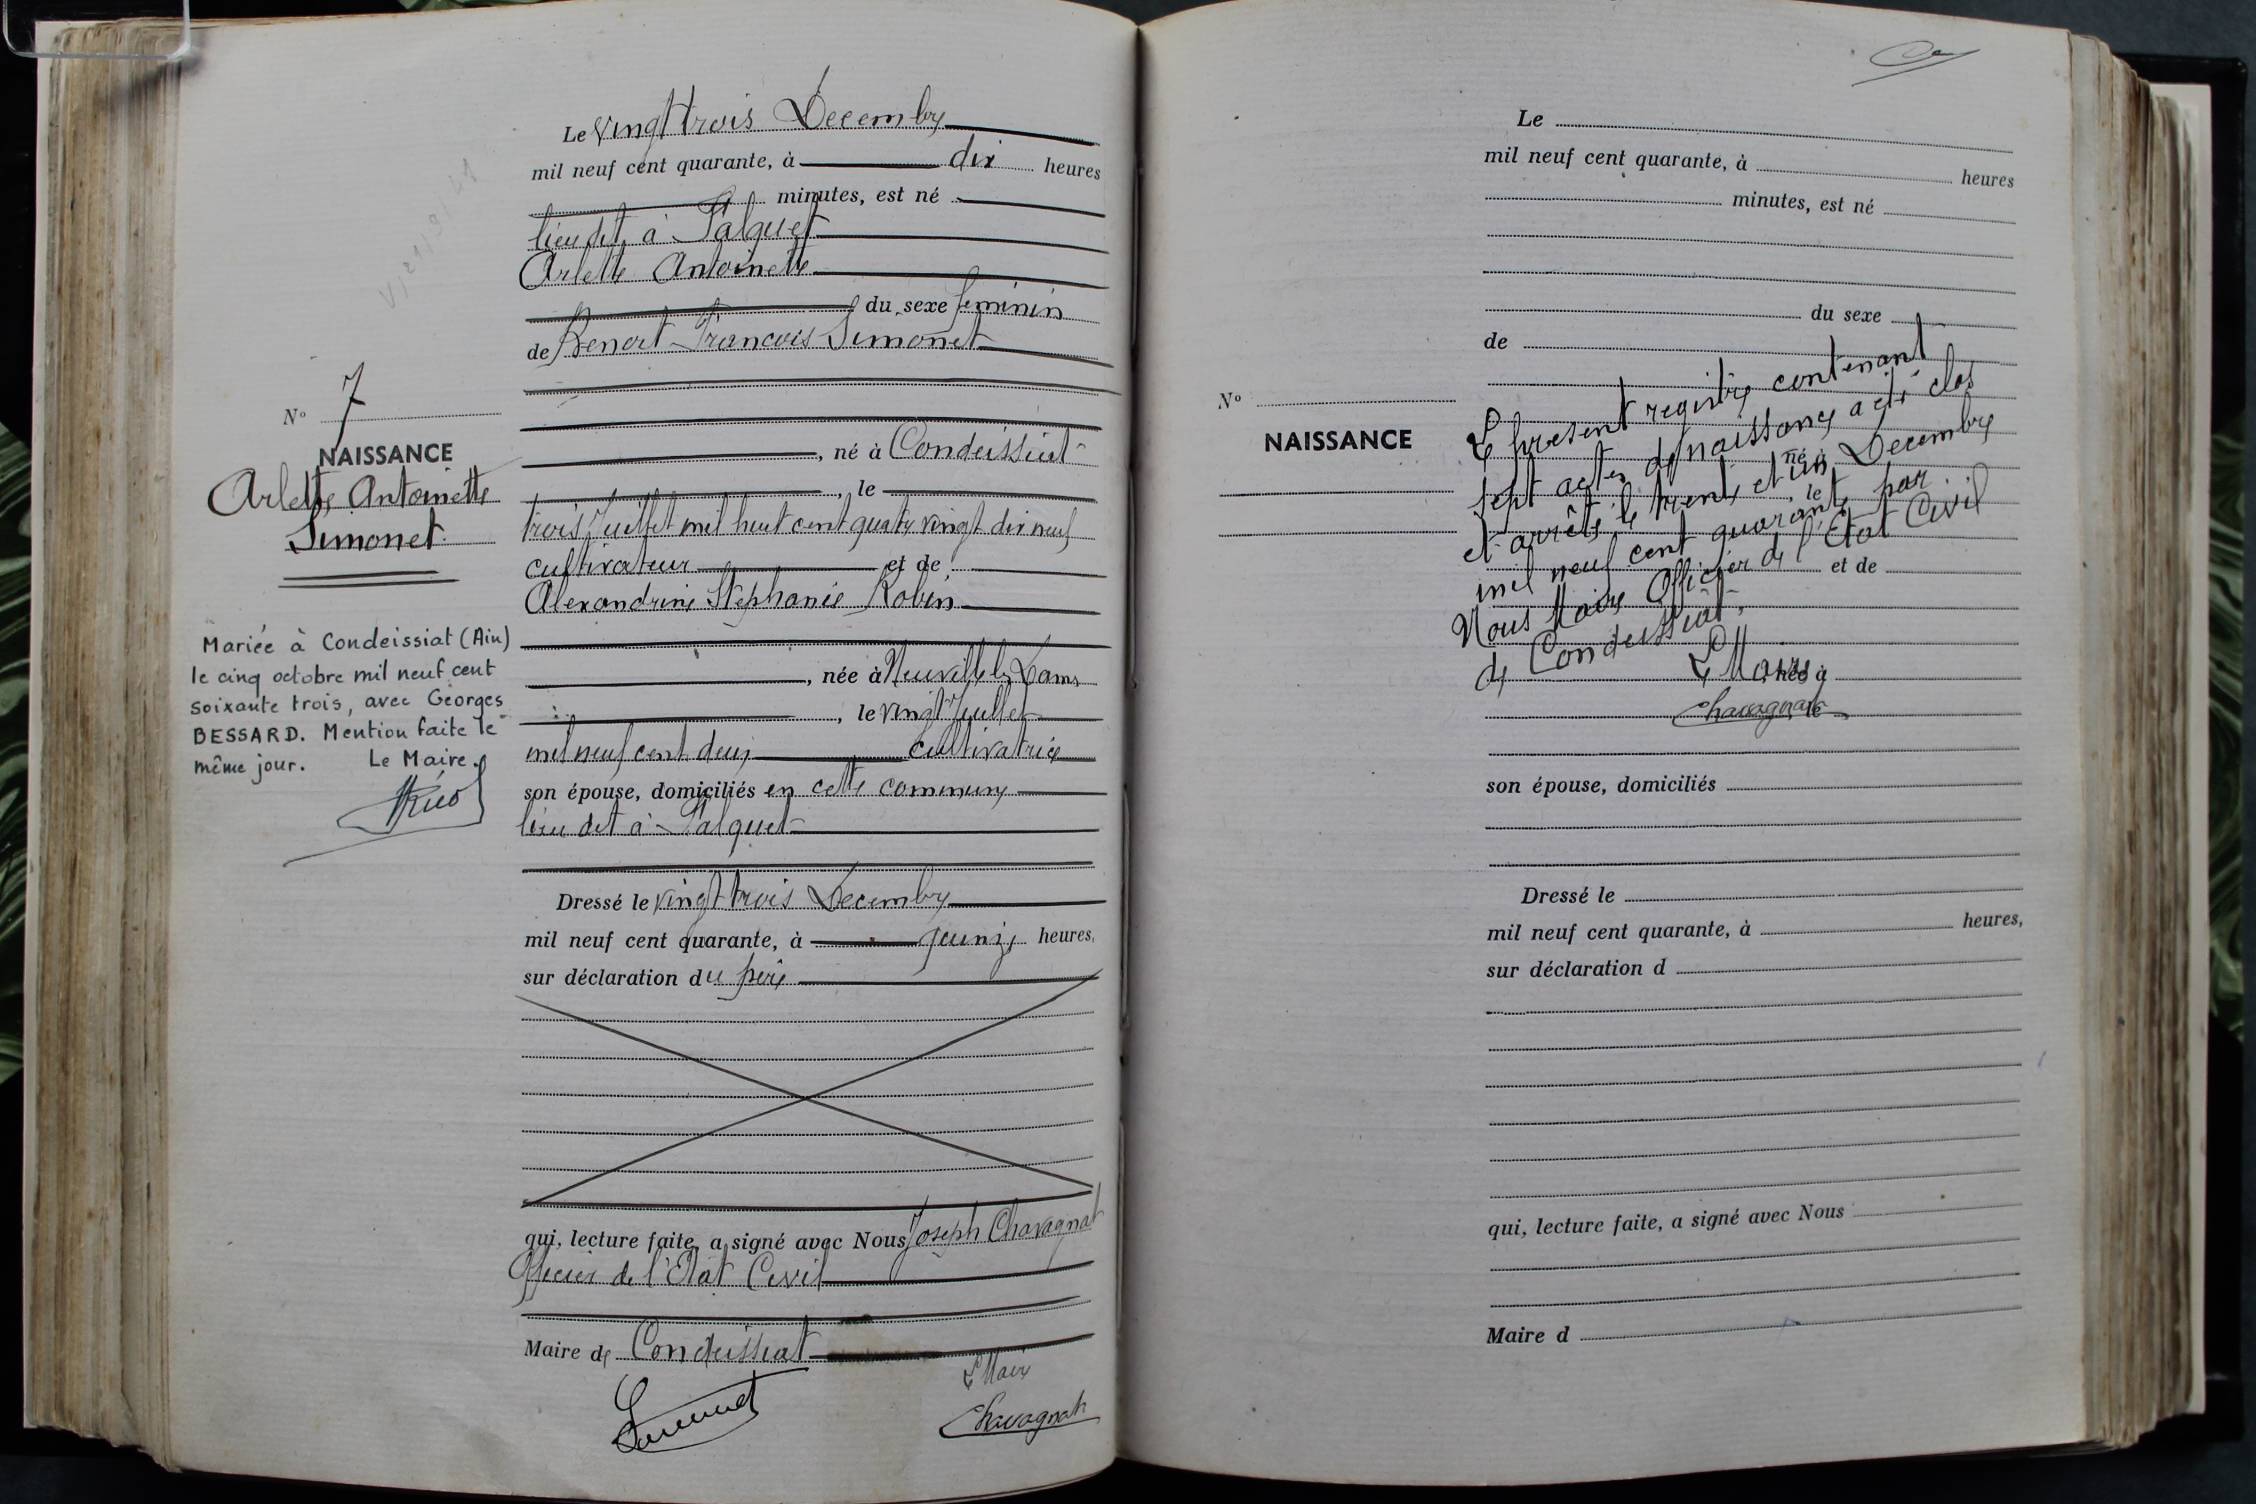 Le vingt trois Decembre
mil neuf cent quarante, à dix heures
minutes, est né
lieu dit à Palquet
Arlette Antoinette
du sexe feminin
de Benoit Francois Simonet
, né à Condeissiat
, le
trois Juillet mil huit cent quatre vingt dix neuf
cultivateur et de
Alexandrine Stéphanie Robin
, née à Neuville les Dames
, le vingt Juillet
mil neuf cent deux cultivatrice
son épouse, domiciliés en cette commune
lieu dit à Palquet
Dressé le vingt trois Decembre
mil neuf cent quarante, à quinze heures,
sur déclaration du père
qui, lecture faite, a signé avec Nous Joseph Chavagnat
Officier de l'Etat Civil
Maire de Condeissiat
Le Maire
Simonet
Chavagnat
N° 7
NAISSANCE
Arlette Antoinette
Simonet
Mariée à Condeissiat (Ain)
le cinq octobre mil neuf cent
soixante trois, avec Georges
BESSARD. Mention faite le
même jour. Le Maire.
Le
mil neuf cent quarante, à heures
minutes, est né
du sexe
de
N°
NAISSANCE
Le present registre contenant
sept actes de naissances a été clos
et arrêté le trente et un Decembre
mil neuf cent quarante par
Nous Maire Officier de l'Etat Civil
de Condeissiat.
Le Maire
Chavagnat
né à
, le
et de
, née à
, le
son épouse, domiciliés
Dressé le
mil neuf cent quarante, à heures,
sur déclaration d
qui, lecture faite, a signé avec Nous
Maire d